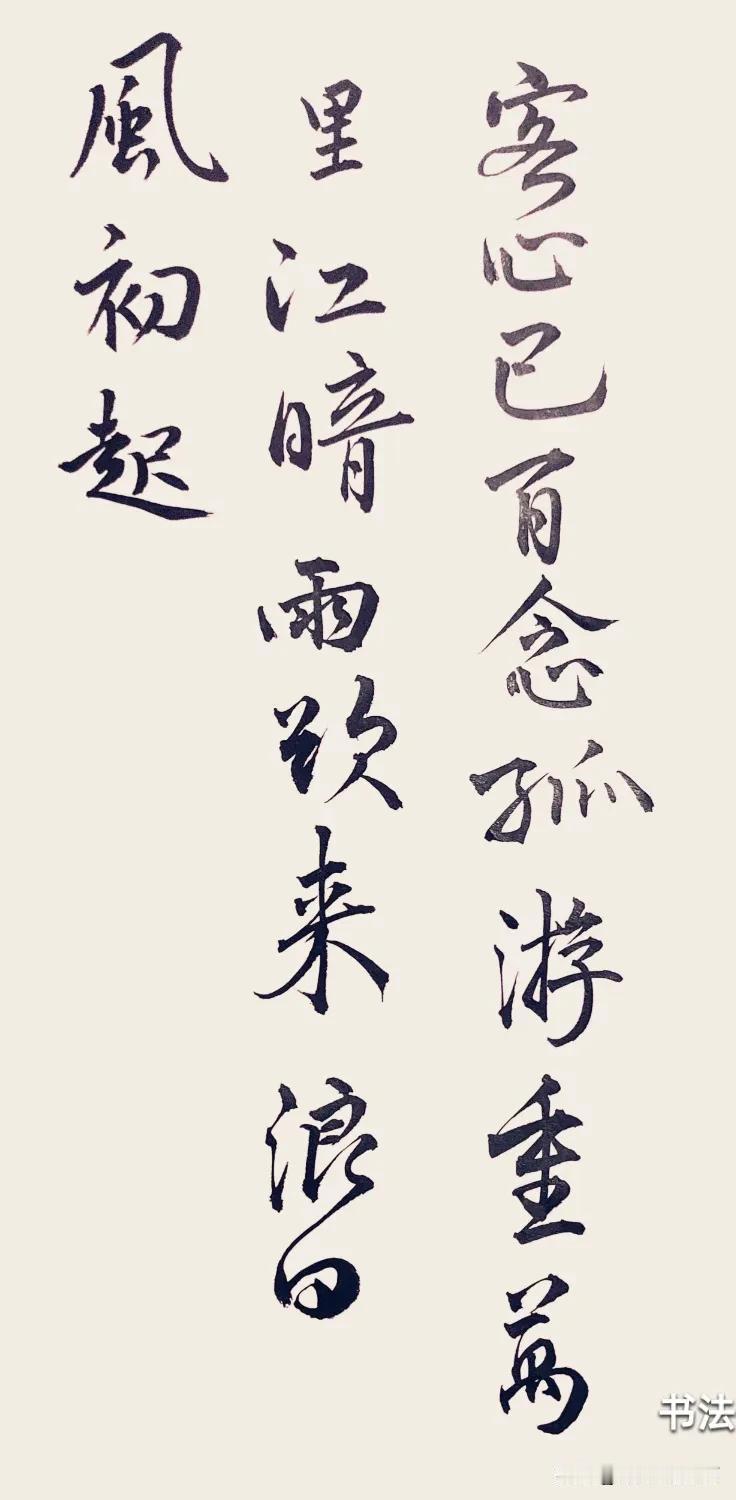 客心已百念孤游重萬
里江暗雨欲来浪白
風初起
书法